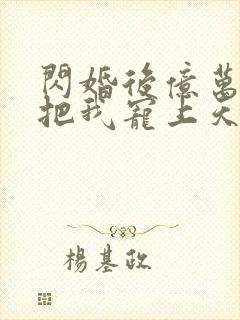 閃婚後億萬
把我寵上天
楊基政